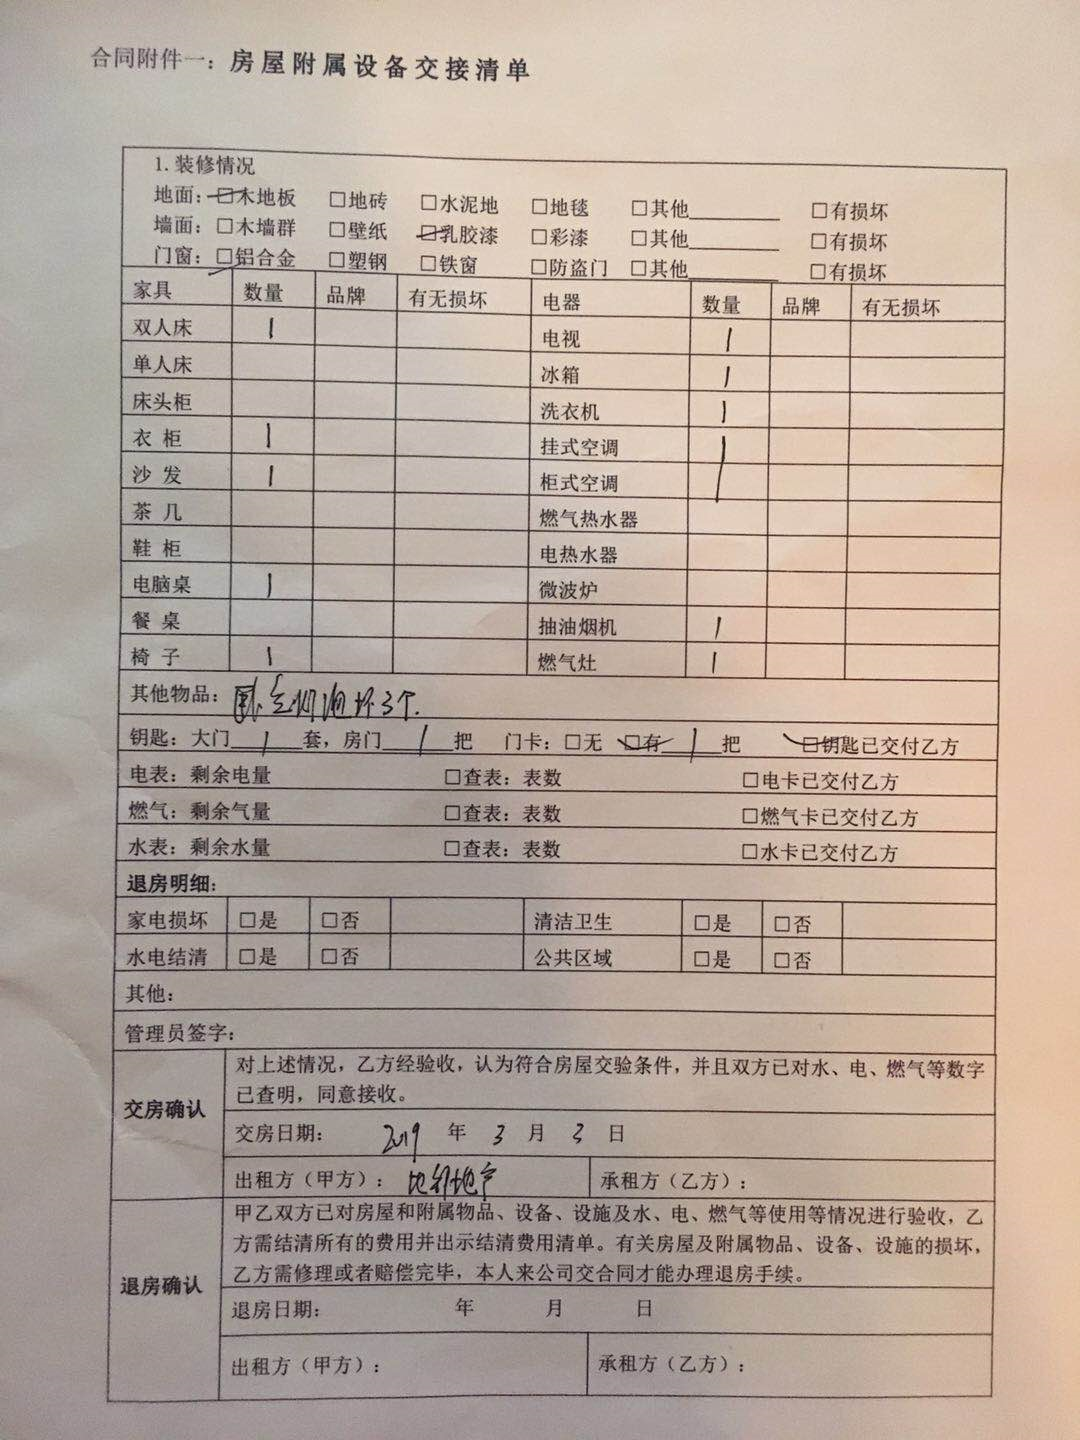 合同附件一：房屋附属设备交接清单
1.装修情况
地面：☑木地板 □地砖 □水泥地 □地毯 □其他________ □有损坏
墙面：□木墙群 □壁纸 ☑乳胶漆 □彩漆 □其他________ □有损坏
门窗：☑铝合金 □塑钢 □铁窗 □防盗门 □其他________ □有损坏
家具 数量 品牌 有无损坏 电器 数量 品牌 有无损坏
双人床 1 电视 1
单人床 冰箱 1
床头柜 洗衣机 1
衣柜 1 挂式空调 1
沙发 1 柜式空调
茶几 燃气热水器
鞋柜 电热水器
电脑桌 1 微波炉
餐桌 抽油烟机 1
椅子 1 燃气灶 1
其他物品： 坏3个.
钥匙：大门 1 套，房门 1 把 门卡：□无 ☑有 1 把 ☑钥匙已交付乙方
电表：剩余电量 □查表：表数 □电卡已交付乙方
燃气：剩余气量 □查表：表数 □燃气卡已交付乙方
水表：剩余水量 □查表：表数 □水卡已交付乙方
退房明细：
家电损坏 □是 □否 清洁卫生 □是 □否
水电结清 □是 □否 公共区域 □是 □否
其他：
管理员签字：
交房确认
对上述情况，乙方经验收，认为符合房屋交验条件，并且双方已对水、电、燃气等数字
已查明，同意接收。
交房日期： 2019 年 3 月 3 日
出租方（甲方）： 承租方（乙方）：
退房确认
甲乙双方已对房屋和附属物品、设备、设施及水、电、燃气等使用等情况进行验收，乙
方需结清所有的费用并出示结清费用清单。有关房屋及附属物品、设备、设施的损坏，
乙方需修理或者赔偿完毕，本人来公司交合同才能办理退房手续。
退房日期： 年 月 日
出租方（甲方）： 承租方（乙方）：